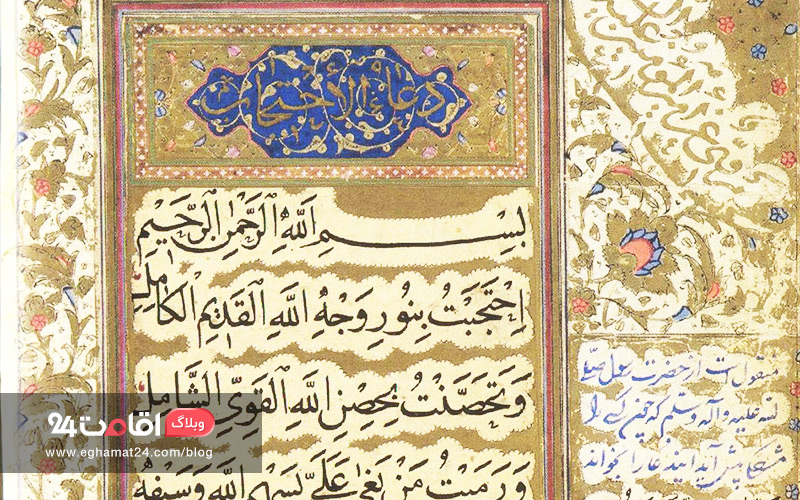 دعاء الاحتجاب
بِسْمِ اللَّهِ الرَّحْمٰنِ الرَّحِيمِ
اِحْتَجَبْتُ بِنُورِ وَجْهِ اللَّهِ الْقَدِيمِ الْكَامِلِ
وَتَحَصَّنْتُ بِحِصْنِ اللَّهِ الْقَوِيِّ الشَّامِلِ
وَرَمَيْتُ مَنْ بَغٰى عَلَيَّ بِسَهْمِ اللَّهِ وَسَيْفِهِ
منقول است از حضرت رسول صلی
الله علیه وآله وسلم که چون کسی را
پیش آید این دعا را بخواند
وبلاگ اقامت 24
www.eghamat24.com/blog